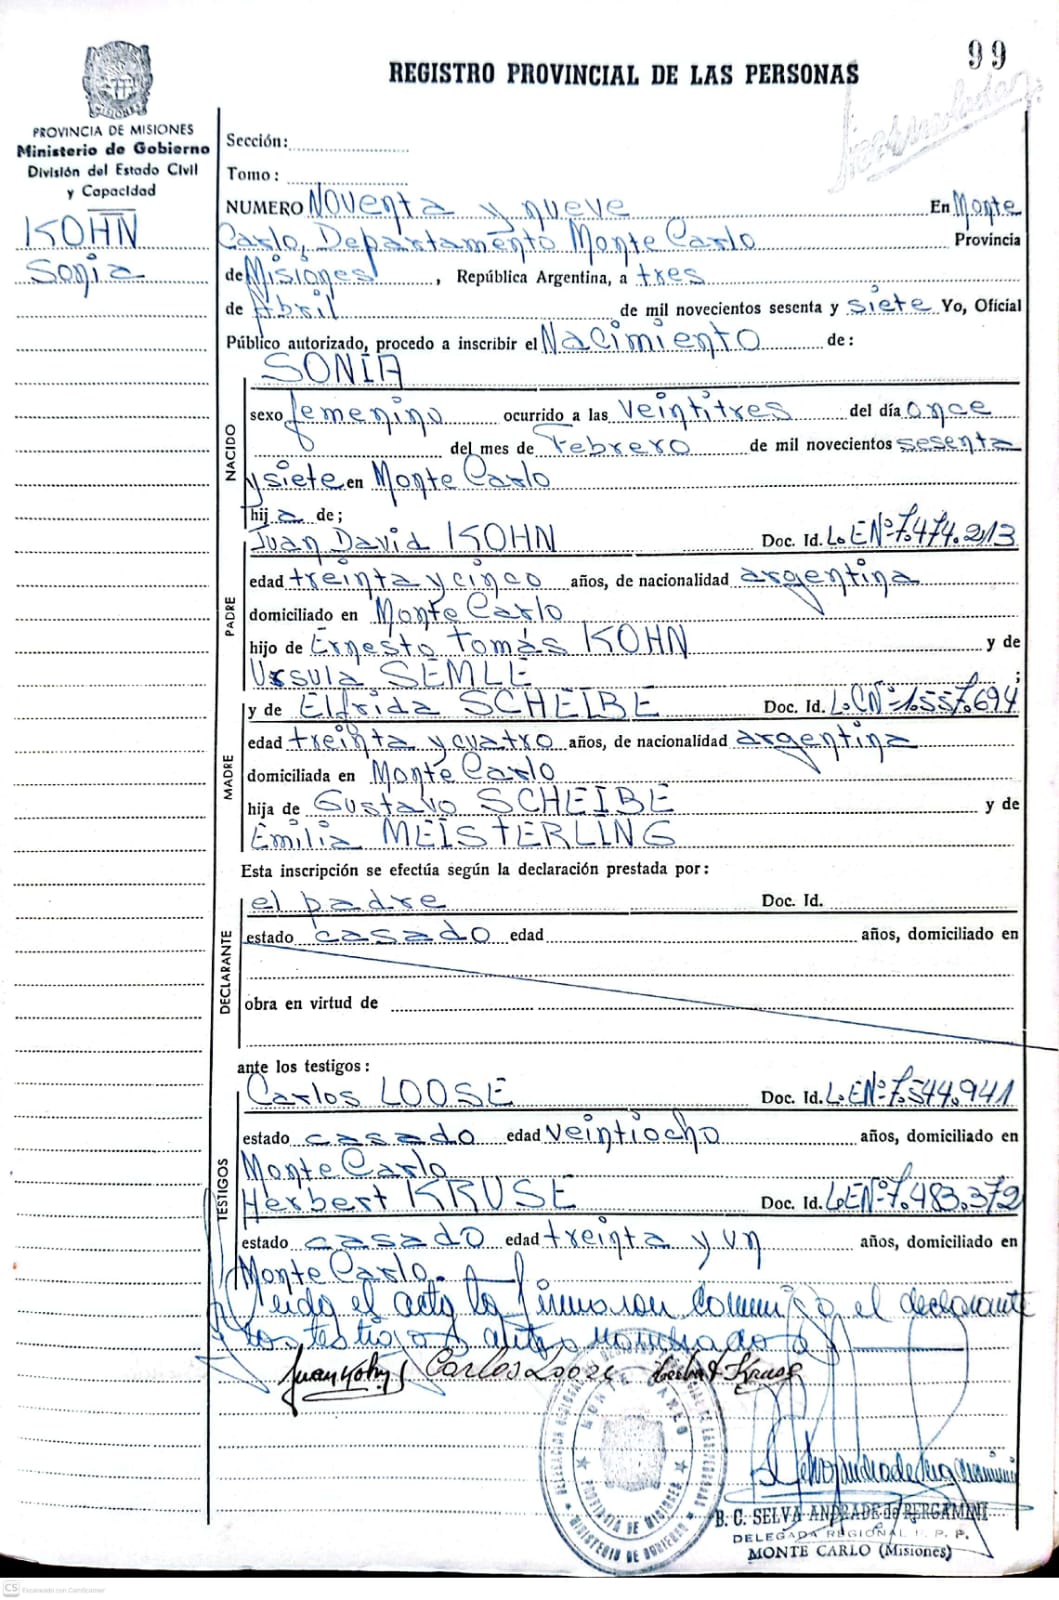 99
REGISTRO PROVINCIAL DE LAS PERSONAS
PROVINCIA DE MISIONES
Ministerio de Gobierno
División del Estado Civil
y Capacidad
KOHN
Sonia
Sección:
Tomo:
NUMERO Noventa y nueve En Monte
Carlo, Departamento Monte Carlo Provincia
de Misiones, República Argentina, a tres
de Abril de mil novecientos sesenta y siete Yo, Oficial
Público autorizado, procedo a inscribir el Nacimiento de:
NACIDO
SONIA
sexo femenino ocurrido a las veintitres del día once
del mes de Febrero de mil novecientos sesenta
y siete en Monte Carlo
hija de;
PADRE
Juan David KOHN Doc. Id. L.E.Nº7.474.213
edad treinta y cinco años, de nacionalidad argentina
domiciliado en Monte Carlo
hijo de Ernesto Tomás KOHN y de
Ursula SEMLE;
MADRE
y de Elfrida SCHEIBE Doc. Id. L.C.Nº1.557.694
edad treinta y cuatro años, de nacionalidad argentina
domiciliada en Monte Carlo
hija de Gustavo SCHEIBE y de
Emilia MEISTERLING
Esta inscripción se efectúa según la declaración prestada por:
DECLARANTE
el padre Doc. Id.
estado casado edad años, domiciliado en
obra en virtud de
ante los testigos:
TESTIGOS
Carlos LOOSE Doc. Id. L.E.Nº7.544.941
estado casado edad veintiocho años, domiciliado en
Monte Carlo
Herbert KRUSE Doc. Id. L.E.Nº7.483.372
estado casado edad treinta y un años, domiciliado en
Monte Carlo.
Leida el acta la firmaron conmigo el declarante
los testigos antes nombrados
Juan Kohn Carlos Loose Herbert Kruse
MONTE CARLO
PROVINCIA DE MISIONES
MINISTERIO DE GOBIERNO
B. C. SELVA ANDRADE de BERGAMINI
DELEGADA REGIONAL R. P. P.
MONTE CARLO (Misiones)
CS Escaneado con CamScanner